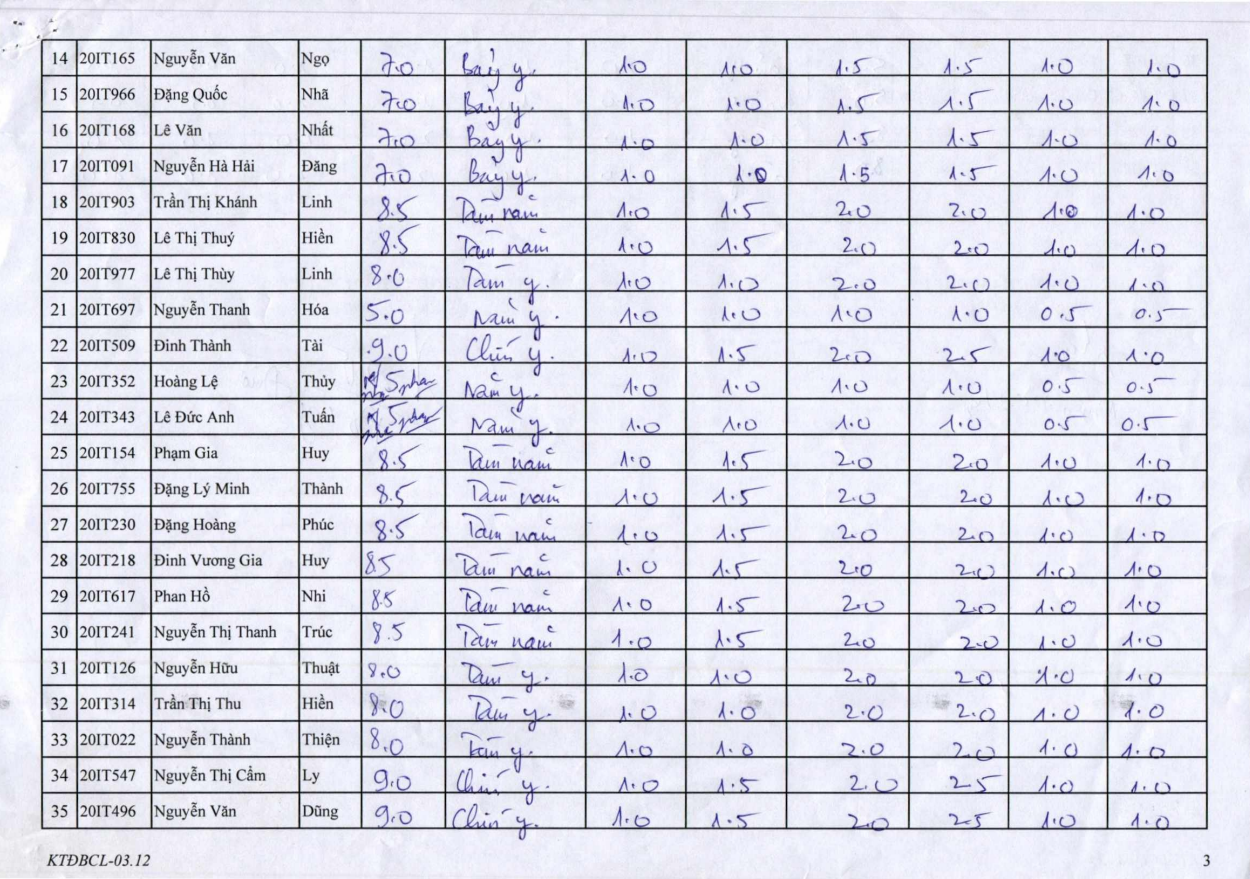 14 20IT165 Nguyễn Văn Ngọ 7.0 Bảy y. 1.0 1.0 1.5 1.5 1.0 1.0
15 20IT966 Đặng Quốc Nhã 7.0 Bảy y. 1.0 1.0 1.5 1.5 1.0 1.0
16 20IT168 Lê Văn Nhất 7.0 Bảy y. 1.0 1.0 1.5 1.5 1.0 1.0
17 20IT091 Nguyễn Hà Hải Đăng 7.0 Bảy y. 1.0 1.0 1.5 1.5 1.0 1.0
18 20IT903 Trần Thị Khánh Linh 8.5 Tám năm 1.0 1.5 2.0 2.0 1.0 1.0
19 20IT830 Lê Thị Thuý Hiền 8.5 Tám năm 1.0 1.5 2.0 2.0 1.0 1.0
20 20IT977 Lê Thị Thùy Linh 8.0 Tám y. 1.0 1.0 2.0 2.0 1.0 1.0
21 20IT697 Nguyễn Thanh Hóa 5.0 Năm y. 1.0 1.0 1.0 1.0 0.5 0.5
22 20IT509 Đinh Thành Tài 9.0 Chín y. 1.0 1.5 2.0 2.5 1.0 1.0
23 20IT352 Hoàng Lệ Thùy Năm y. 1.0 1.0 1.0 1.0 0.5 0.5
24 20IT343 Lê Đức Anh Tuấn Năm y. 1.0 1.0 1.0 1.0 0.5 0.5
25 20IT154 Phạm Gia Huy 8.5 Tám năm 1.0 1.5 2.0 2.0 1.0 1.0
26 20IT755 Đặng Lý Minh Thành 8.5 Tám năm 1.0 1.5 2.0 2.0 1.0 1.0
27 20IT230 Đặng Hoàng Phúc 8.5 Tám năm 1.0 1.5 2.0 2.0 1.0 1.0
28 20IT218 Đinh Vương Gia Huy 8.5 Tám năm 1.0 1.5 2.0 2.0 1.0 1.0
29 20IT617 Phan Hồ Nhi 8.5 Tám năm 1.0 1.5 2.0 2.0 1.0 1.0
30 20IT241 Nguyễn Thị Thanh Trúc 8.5 Tám năm 1.0 1.5 2.0 2.0 1.0 1.0
31 20IT126 Nguyễn Hữu Thuật 8.0 Tám y. 1.0 1.0 2.0 2.0 1.0 1.0
32 20IT314 Trần Thị Thu Hiền 8.0 Tám y. 1.0 1.0 2.0 2.0 1.0 1.0
33 20IT022 Nguyễn Thành Thiện 8.0 Tám y. 1.0 1.0 2.0 2.0 1.0 1.0
34 20IT547 Nguyễn Thị Cẩm Ly 9.0 Chín y. 1.0 1.5 2.0 2.5 1.0 1.0
35 20IT496 Nguyễn Văn Dũng 9.0 Chín y. 1.0 1.5 2.0 2.5 1.0 1.0
KTĐBCL-03.12 3